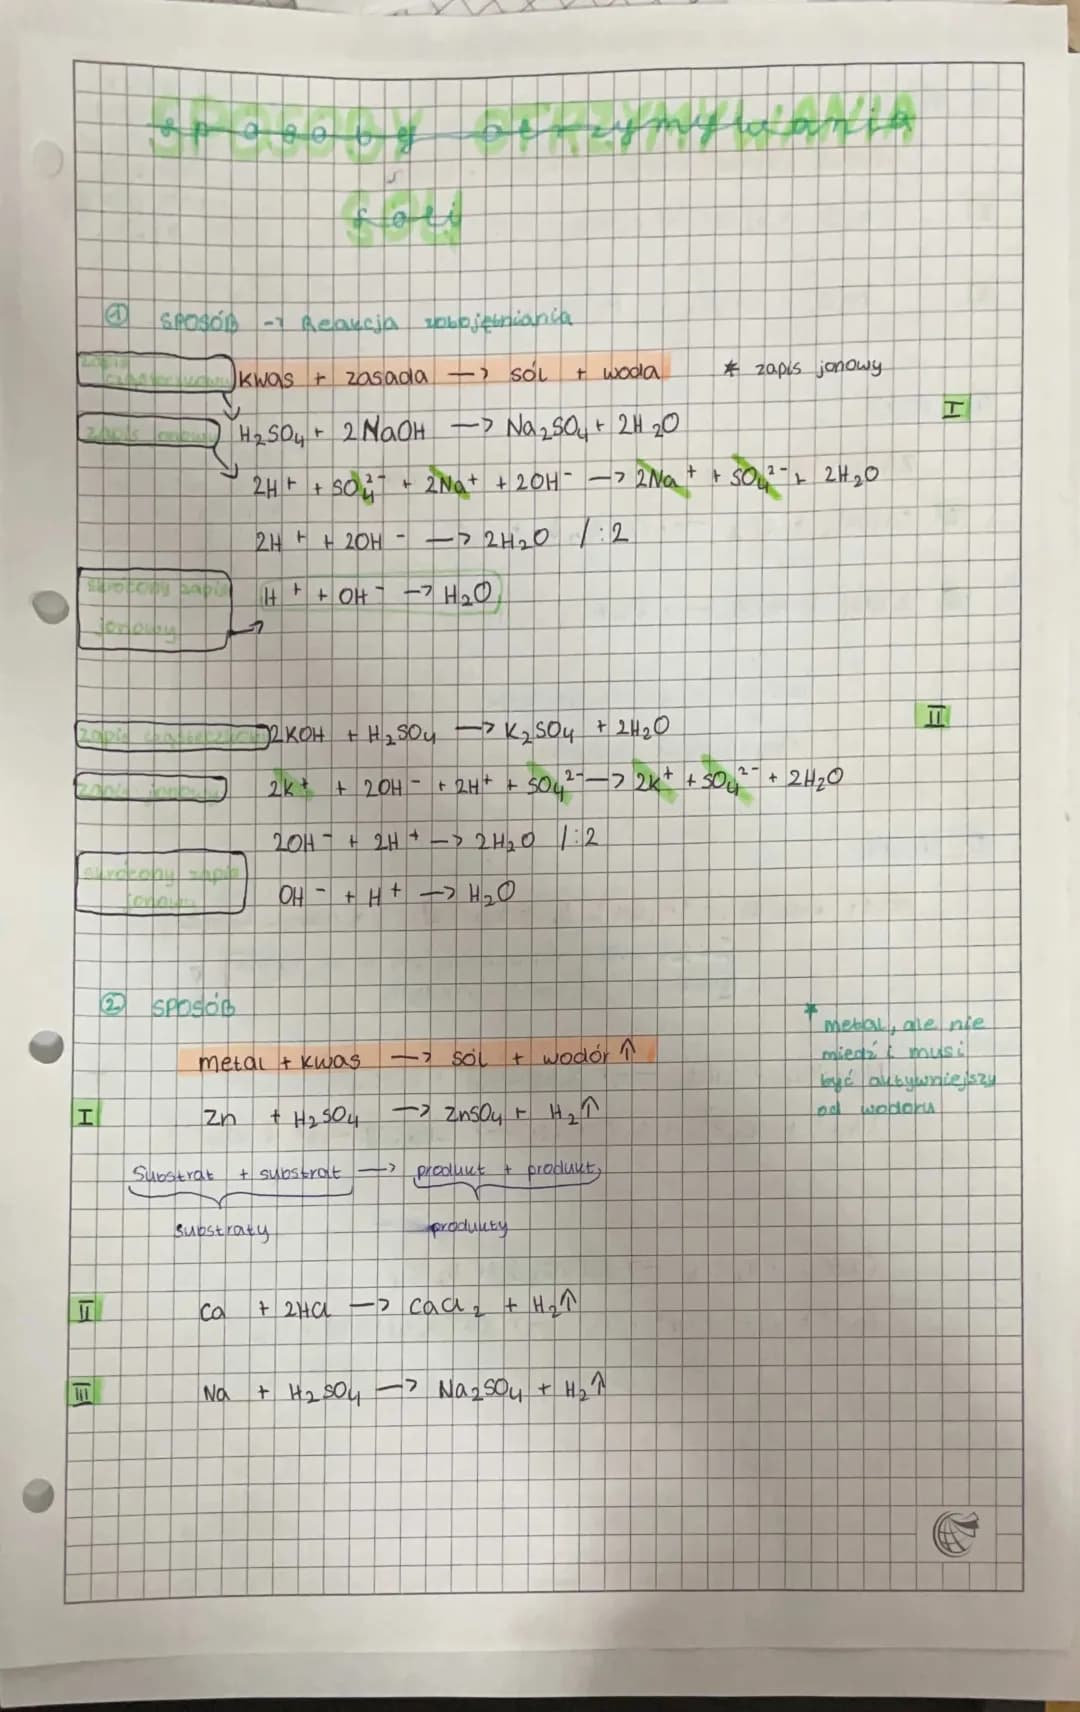 sposoby otrzymywania
soli
① SPOSÓB -> Reakcja zobojętniania
zapis cząsteczkowy kwas + zasada —> sól + woda * zapis jonowy
I
zapis jonowy H₂SO₄ + 2NaOH —> Na₂SO₄ + 2H₂O
2H⁺ + SO₄²⁻ + 2Na⁺ + 2OH⁻ —> 2Na⁺ + SO₄²⁻ + 2H₂O
2H⁺ + 2OH⁻ —> 2H₂O /:2
skrócony zapis jonowy H⁺ + OH⁻ —> H₂O
II
zapis cząsteczkowy 2KOH + H₂SO₄ —> K₂SO₄ + 2H₂O
zapis jonowy 2K⁺ + 2OH⁻ + 2H⁺ + SO₄²⁻ —> 2K⁺ + SO₄²⁻ + 2H₂O
2OH⁻ + 2H⁺ —> 2H₂O /:2
skrócony zapis jonowy OH⁻ + H⁺ —> H₂O
② SPOSÓB
* metal, ale nie
miedź i musi
być aktywniejszy
od wodoru
metal + kwas —> sól + wodór ↑
I Zn + H₂SO₄ —> ZnSO₄ + H₂↑
Substrat + substrat —> produkt + produkt
substraty produkty
II Ca + 2HCl —> CaCl₂ + H₂↑
III Na + H₂SO₄ —> Na₂SO₄ + H₂↑